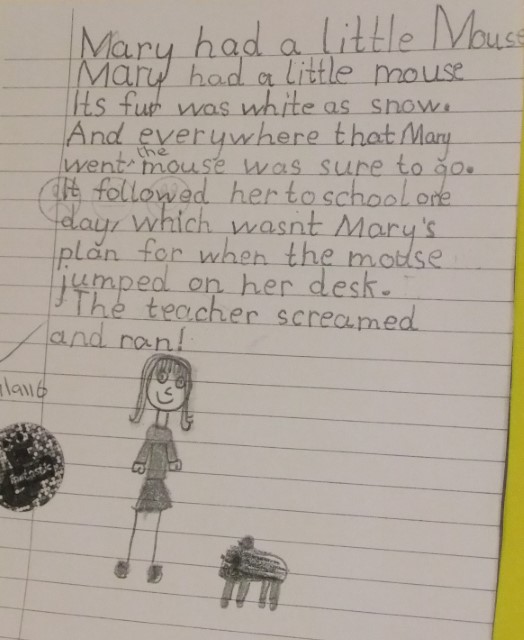 Mary had a little Mouse
Mary had a little mouse
Its fur was white as snow.
And everywhere that Mary
went the mouse was sure to go.
It followed her to school one
day, which wasnt Mary's
plan for when the mouse
jumped on her desk.
The teacher screamed
and ran!